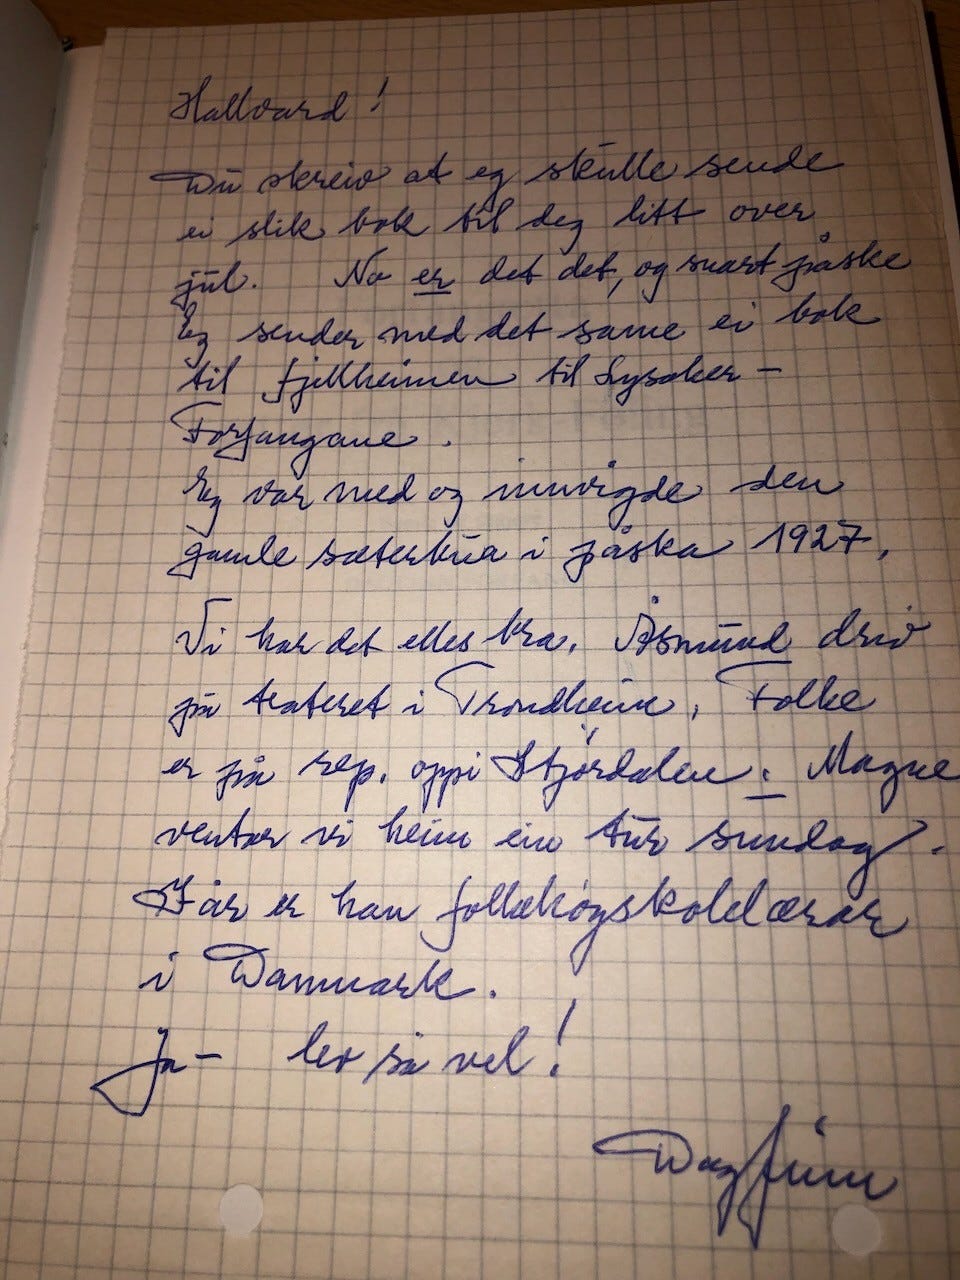 Hallvard!
Du skreiv at eg skulle sende
ei slik bok til deg litt over
jul. No er det det, og snart påske
Eg sender med det same ei bok
til fjellheimen til Lysaker –
Forfangane.
Eg var med og innvigde den
gamle sæterbua i påska 1927,
Vi har det elles bra. Åsmund driv
på teateret i Trondheim, Folke
er på rep. oppi Stjørdalen. Magne
ventar vi heim ein tur sundag.
I år er han folkehøgskolelærar
i Danmark.
Ja – lev så vel!
Dagfinn